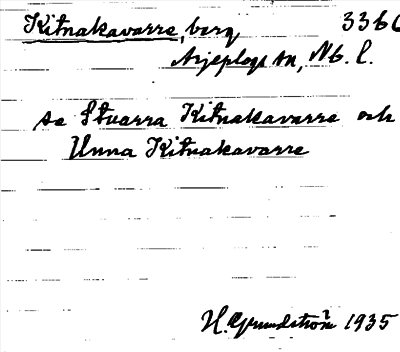 Kitnakavarre, berg 336
Arjeplogs sn, Nb. l.
se Stuorra Kitnakavarre och
Unna Kitnakavarre
H. Grundström 1935